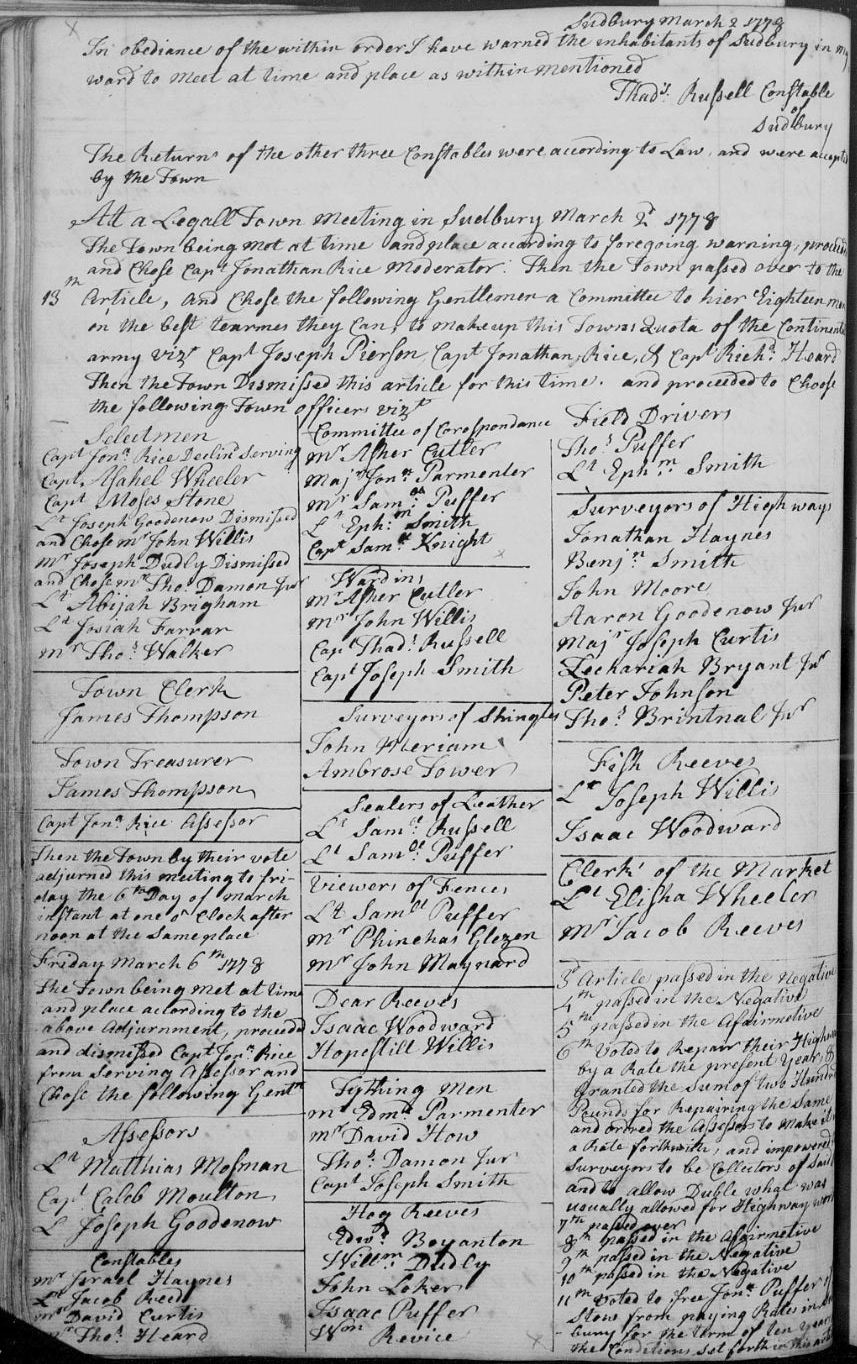 Sudbury March 2 1778
In obediance of the within order I have warned the inhabitants of Sudbury in my
ward to meet at time and place as within mentioned
Thads. Russell Constable
of
Sudbury
The Return of the other three Constables were according to Law, and were accept
by the Town
Att a Legall Town Meeting in Sudbury March 2d 1778
The Town being met at time and place according to foregoing warning, proceed
and Chose Capt Jonathan Rice Moderator. Then the Town passed over to the
13th Article, and Chose the following Gentlemen a Committee to hier Eighteen men
on the best tearmes they Can, to make up this Towns Quota of the Continent
army vizt Capt Joseph Pierson, Capt Jonathan Rice, & Capt Richd. Heard
Then the Town Dismissed this article for this time. and proceeded to Choose
the following Town officers vizt
Selectmen
Capt Jona. Rice Declind Serving
Capt Asahel Wheeler
Capt Moses Stone
Lt Joseph Goodenow Dismissed
and Chose mr John Willis
Mr Joseph Dudly Dismissed
and Chose mr Tho. Damon Jur
Lt Abijah Brigham
Lt Josiah Farrar
Mr Thos Walker
Town Clerk
James Thompson
Town Treasurer
James Thompson
Capt Jona Rice Assessor
Then the Town by their vote
adjurned this meeting to fri-
day the 6th Day of march
instant at one o Clock after
noon at the Same place
Friday March 6th 1778
The Town being Met at time
and place according to the
above Adjurnment, proceed
and dismissed Capt Jona. Rice
from Serving Assessor and
Chose the following Gentn
Assessors
Lt Matthias Mosman
Capt Caleb Moulton
Lt Joseph Goodenow
Constables
Mr Israel Haynes
Jacob Reed
mr David Curtis
mr Thos. Heard
Committee of Corespondance
Mr Asher Cutler
Majr Jona Parmenter
Mr Saml Puffer
Lt Ephm Smith
Capt Samll Knight
Wardins
Mr Asher Cutler
Mr John Willis
Capt Thads Russell
Capt Joseph Smith
Surveyors of Shingles
John Meriam
Ambrose Tower
Sealers of Leather
Lt Samll Russell
Lt Samll Puffer
Viewers of Fences
Lt Samll Puffer
Mr Phinehas Glezen
Mr John Maynard
Dear Reeves
Isaac Woodward
Hopestill Willis
Tything Men
mr Edmd Parmenter
Mr David How
Thos. Damon Jur
Capt Joseph Smith
Hog Reeves
Edwd Boyanton
Willm Dudly
John Loker
Isaac Puffer
Wm Revice
Field Drivers
Thos Puffer
Lt Ephm Smith
Surveyors of High ways
Jonathan Haynes
Benjn Smith
John Moore
Aaron Goodenow Jur
Majr Joseph Curtis
Zechariah Bryant Jur
Peter Johnson
Thos Brintnal Jur
Fish Reeves
Lt Joseph Willis
Isaac Woodward
Clerks of the Market
Lt Elisha Wheeler
Mr Jacob Reeves
3d Article passed in the Negative
4th passed in the Negative
5th passed in the Afairmetive
6th Voted to Repair their Highway
by a Rate the present Year, &
Granted the Sum of two Hundred
Pounds for Repairing the Same
and ordred the Assessors to Make it
a Rate forthwith, and impowered
Surveyors to be Collectors of Said
and to allow Duble what was
usually allowed for Highway work
7th passed over
8th passed in the Afairmetive
9th passed in the Negative
10th passed in the Negative
11th Voted to free Jona. Puffer of
Stow from paying Rates in
bury for the term of ten Years
the Conditions Set forth in this